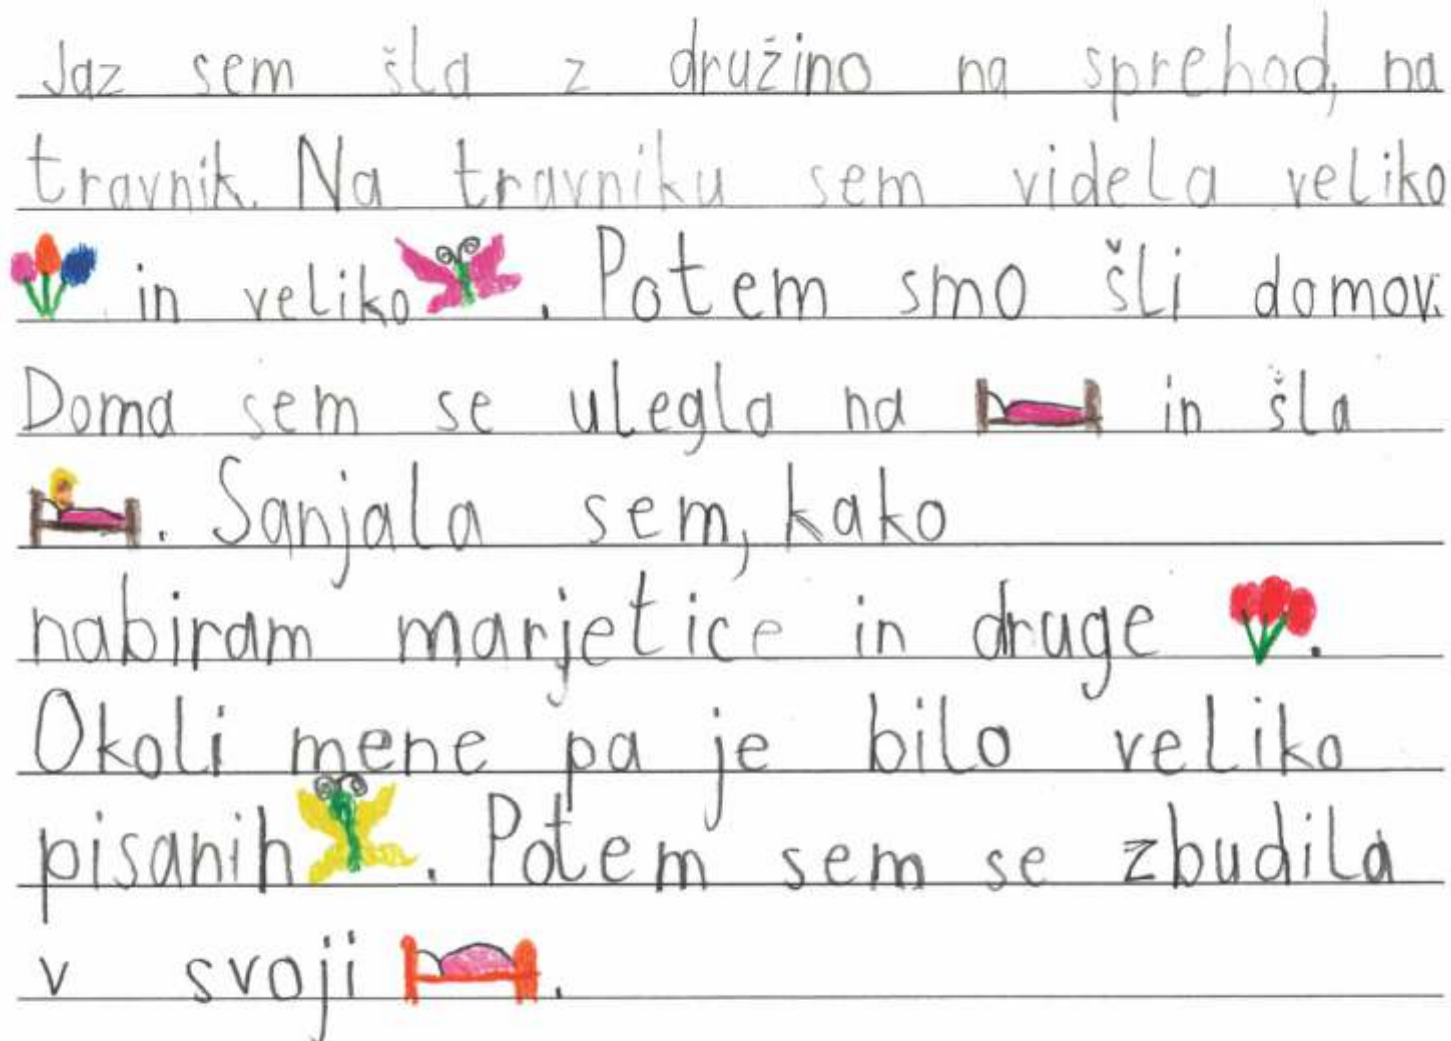 Jaz sem šla z družino na sprehod, na
travnik. Na travniku sem videla veliko
in veliko . Potem smo šli domov.
Doma sem se ulegla na in šla
. Sanjala sem, kako
nabiram marjetice in druge .
Okoli mene pa je bilo veliko
pisanih . Potem sem se zbudila
v svoji .